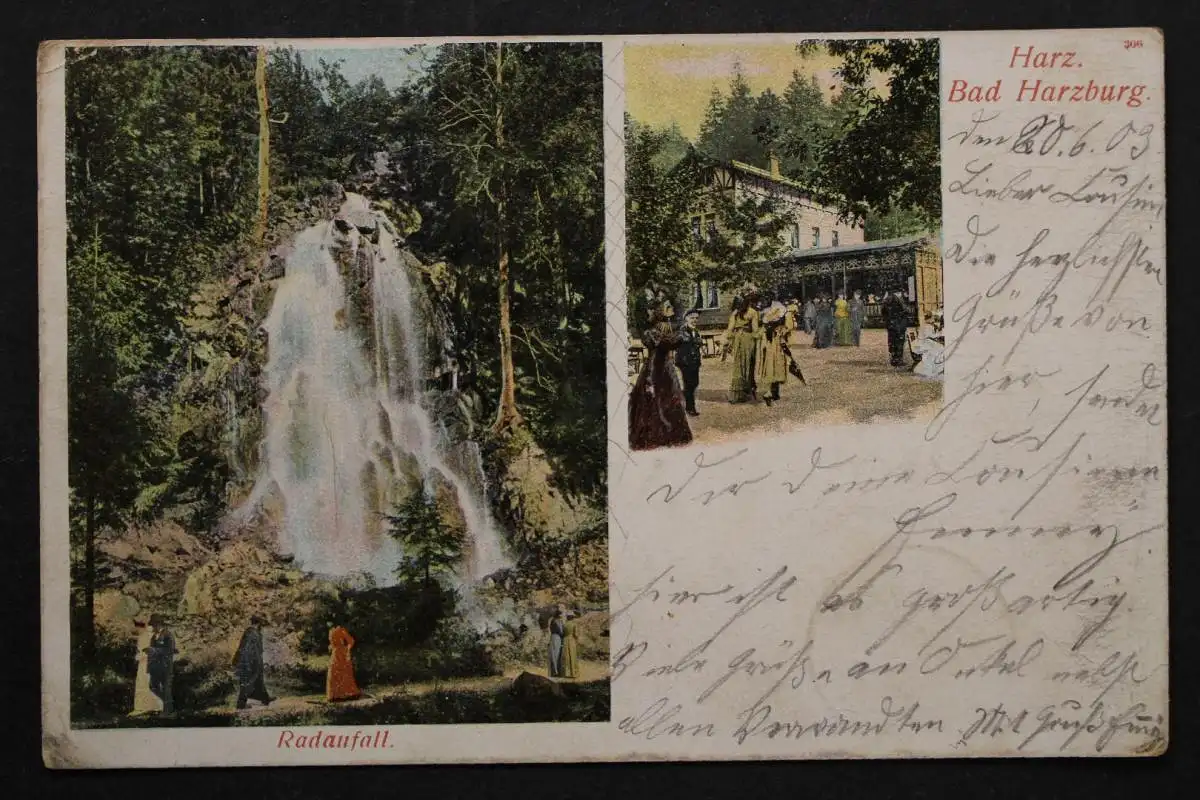 306
Harz.
Bad Harzburg.
den 20.6.03
Lieber Cousin
Die herzlichsten
Grüße von
hier, sendet
Dir Deine Cousine
hier ist es großartig.
Viele Grüße an Onkel nebst
allen Verwandten Mit Gruß
Radaufall.